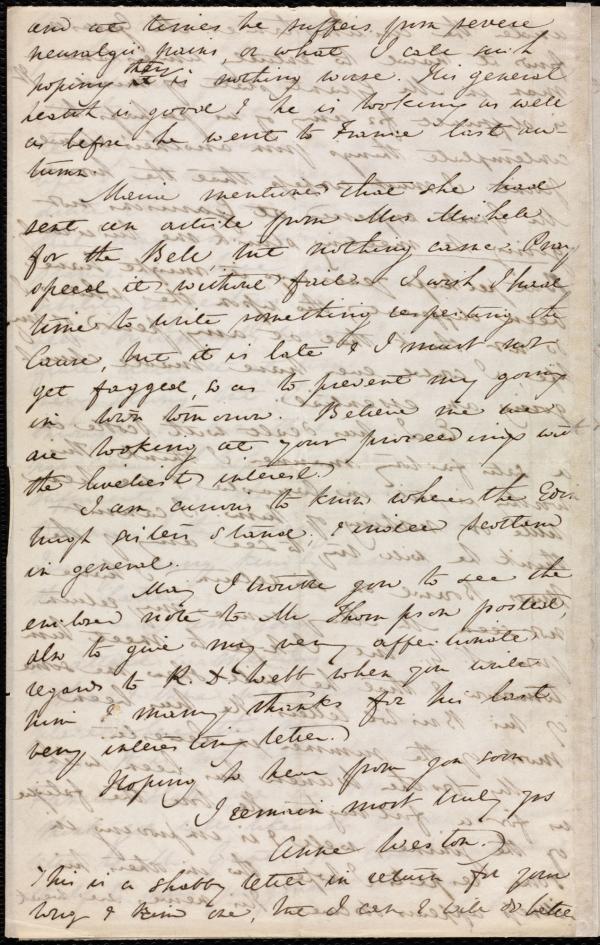 and at times he suffers from severe
neuralgic pains, or what I call such
hoping they is nothing worse. His general
health is good & he is looking as well
as before he went to France last au-
tumn.
Maria mentioned that she had
sent an article from Mrs Michell
for the Bell but nothing came. Pray
speed it without fail. I wish I had
time to write something respecting the
Cause, but it is late & I must not
get fagged, so as to prevent my going
in town tomorrow. Believe me we
are looking at your proceedings with
the liveliest interest.
I am curious to know where the Edin
burgh sisters stand, & indeed Scotland
in general.
May I trouble you to see the
enclosed note to Mr Thompson posted,
also to give my very affectionate
regards to R. D Webb when you write
him & many thanks for his last
very interesting letter.
Hoping to hear from you soon
I remain most truly yrs
Anne Weston.
This is a shabby letter in return for your
long & kind one, but I can & will do better